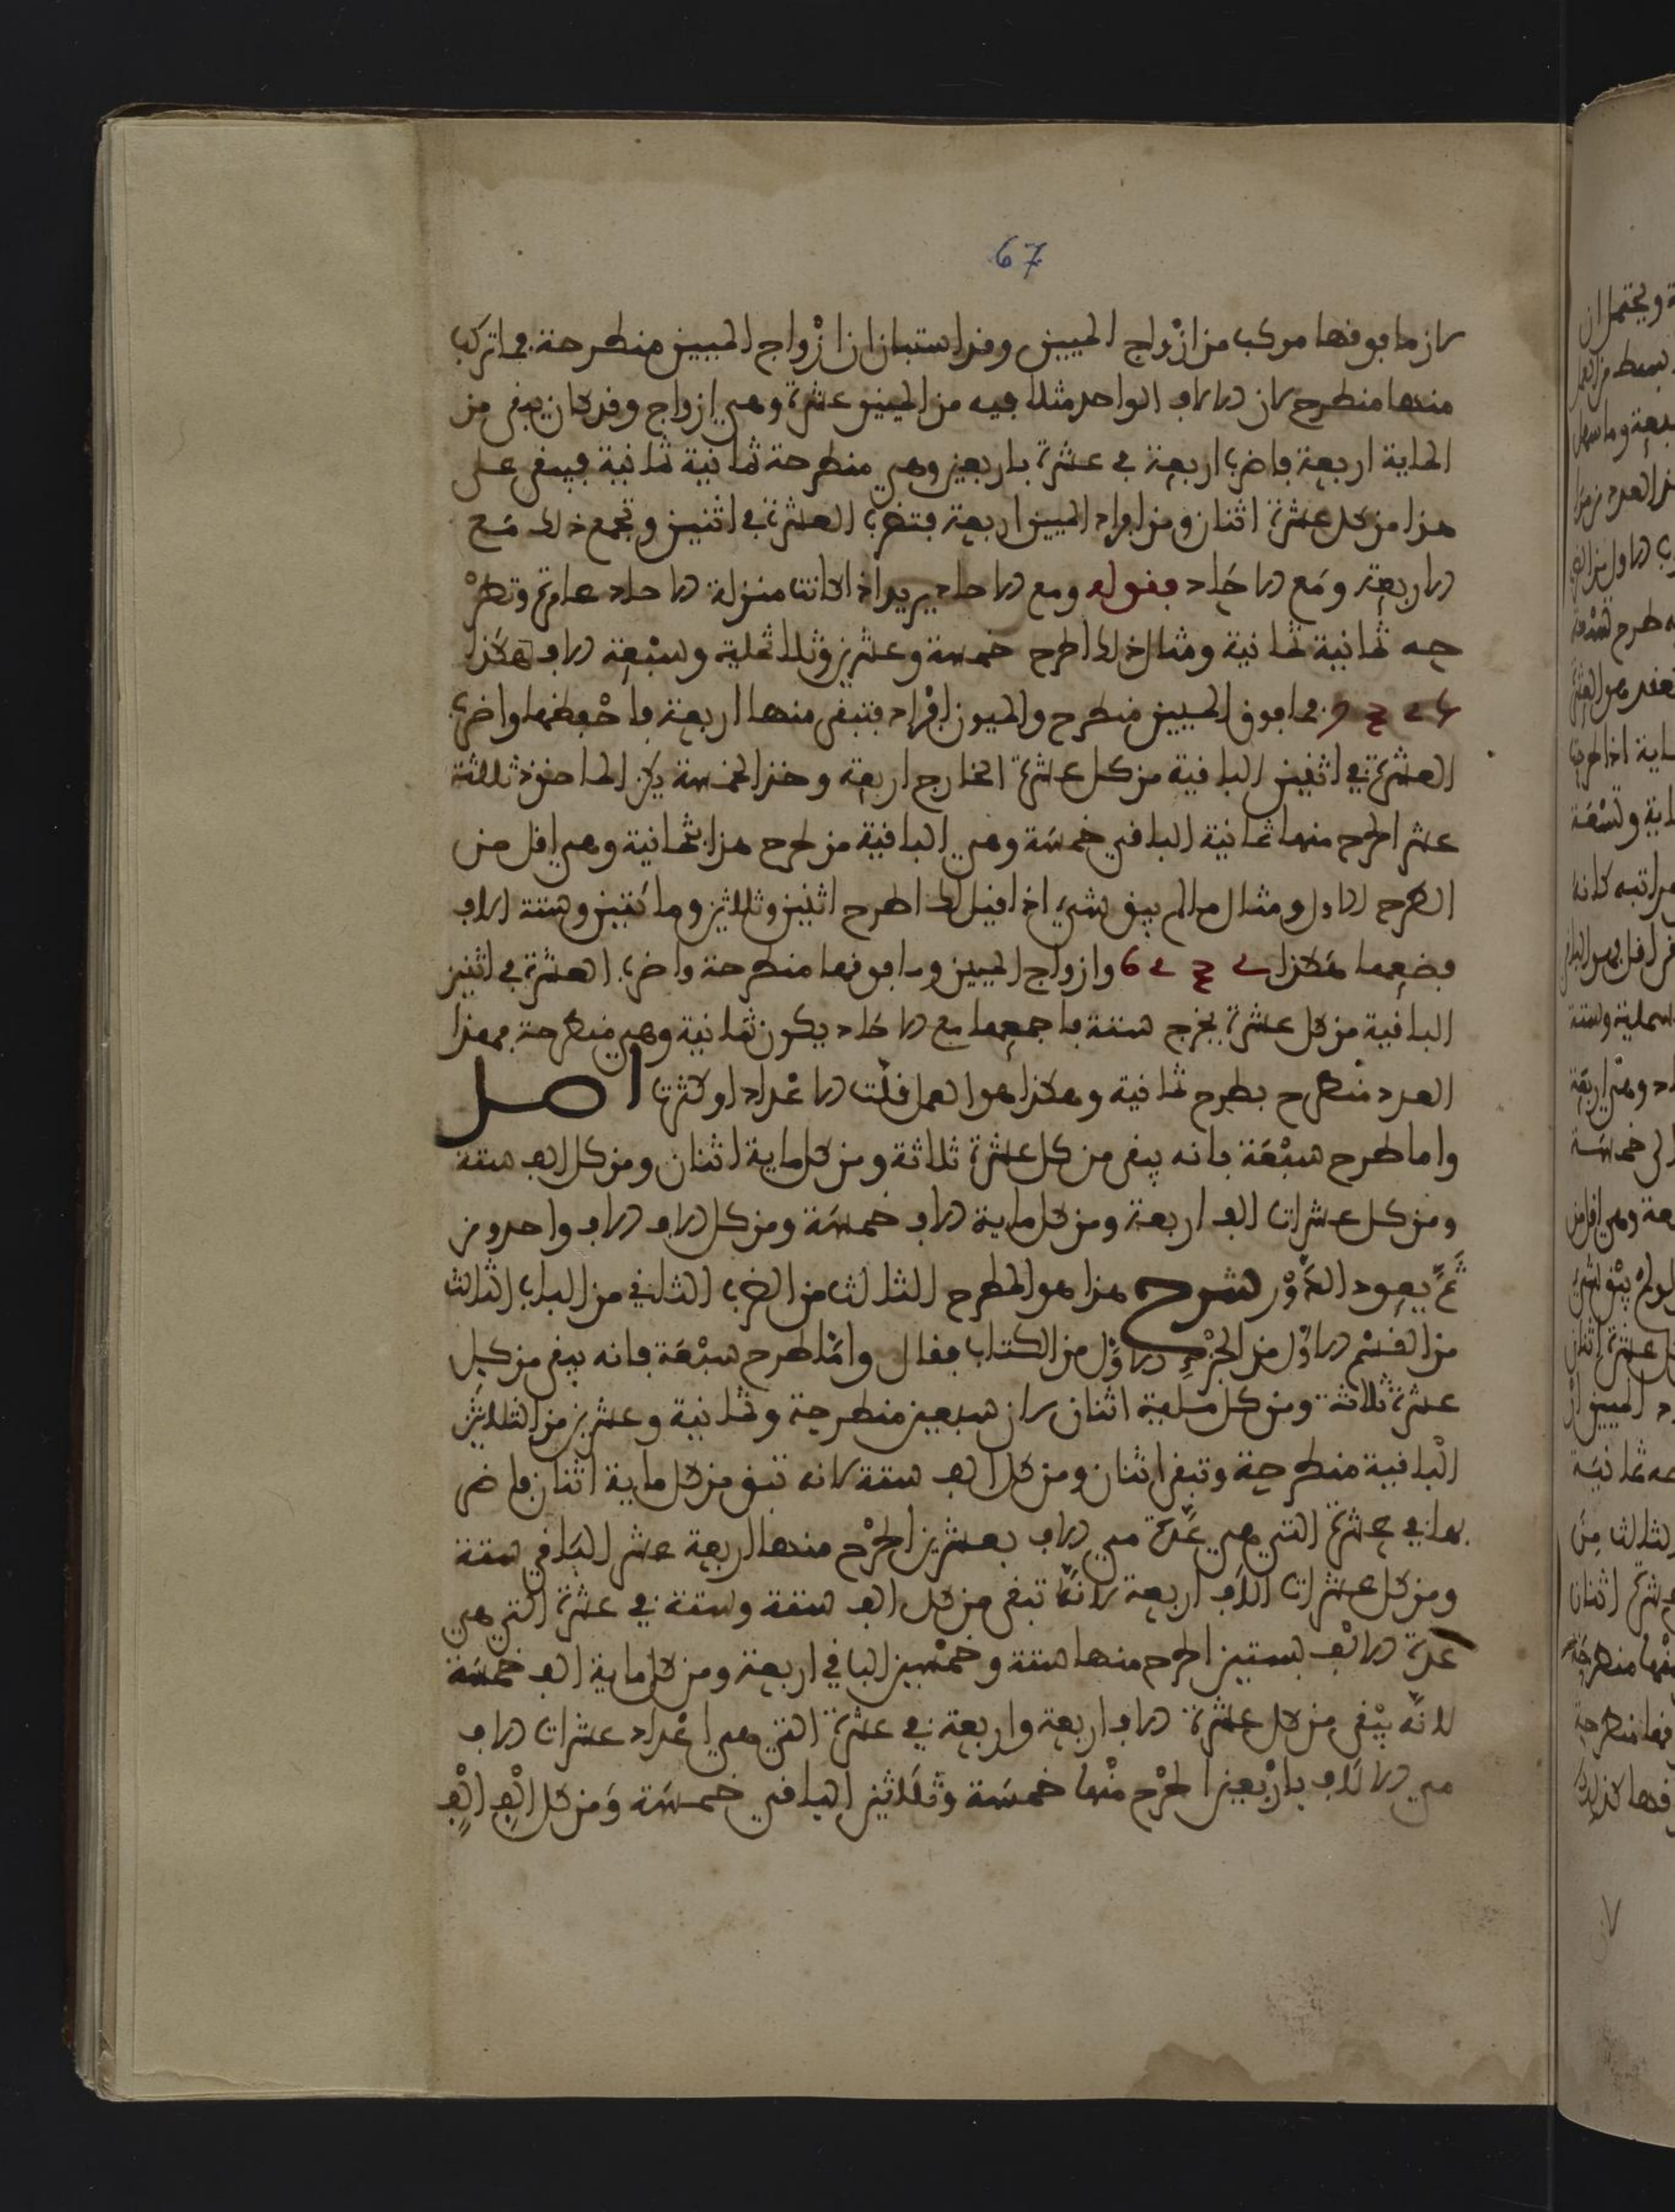 67
لان ما فوقها مركب من ازواج الميين وقد استبان ان ازواج الميين منطرحة فما تركب
منها منطرح لان الالاف الواحد مثلا فيه من الميين عشرة وهي ازواج وقد كان يبقى من
الماية اربعة فاضرب اربعة في عشرة باربعين وهي منطرحة ثمانية ثمانية فيبقى على
هذا من كل عشرة اثنان ومن افراد الميين اربعة فتضرب العشرة في اثنين وتجمع ذلك مع
الاربعة ومع الاحاد فقوله ومع الاحاد يريد اذا كانت منزلة الاحاد عامرة وتطر
حه ثمانية ثمانية ومثال ذلك اطرح خمسة وعشرين وثلاثماية وسبعة الاف هكذا
فما فوق الميين منطرح والميون افراد فتبقى منها اربعة فاحفظها واضرب
العشرة في اثنين الباقية من كل عشرة الخارج اربعة وخذ الخمسة يكن الماخوذ ثلاثة
عشر اطرح منها ثمانية الباقي خمسة وهي الباقية من طرح هذا بثمانية وهي اقل من
الطرح الاول ومثال ما لم يبق شيء اذا قيل لك اطرح اثنين وثلاثين ومائتين وستة الاف
فضعها هكذا 6 2 3 2 وازواج الميين وما فوقها منطرحة واضرب العشرة في اثنين
الباقية من كل عشرة يخرج ستة فاجمعها مع الاحاد يكون ثمانية وهي منطرحة فهذا
العدد منطرح بطرح ثمانية وهكذا هو العمل قلت الاعداد او كثرت اصل
واما طرح سبعة فانه يبقى من كل عشرة ثلاثة ومن كل ماية اثنان ومن كل الف ستة
ومن كل عشرات الف اربعة ومن كل ماية الاف خمسة ومن كل الاف الاف واحد ومن
ثم يعود الدور شرح هذا هو الطرح الثالث من الضرب الثاني من الباب الثالث
من القسم الاول من الجزء الاول من الكتاب فقال واما طرح سبعة فانه يبقى من كل
عشرة ثلاثة ومن كل ماية اثنان لان سبعين منطرحة وثمانية وعشرين من الثلاثين
الباقية منطرحة وتبقى اثنان ومن كل الف ستة لانه تبقى من كل ماية اثنان فاضر
بها في عشرة التي هي عدة مي الاف بعشرين اطرح منها اربعة عشر الباقي ستة
ومن كل عشرات الاف اربعة لانه تبقى من كل الف ستة وستة في عشرة التي هي
عدة الالف بستين اطرح منها ستة وخمسين الباقي اربعة ومن كل ماية الف خمسة
لانه يبقى من كل عشرة الاف اربعة واربعة في عشرة التي هي اعداد عشرات الاف
مي الالاف باربعين اطرح منها خمسة وثلاثين الباقي خمسة ومن كل الف الف